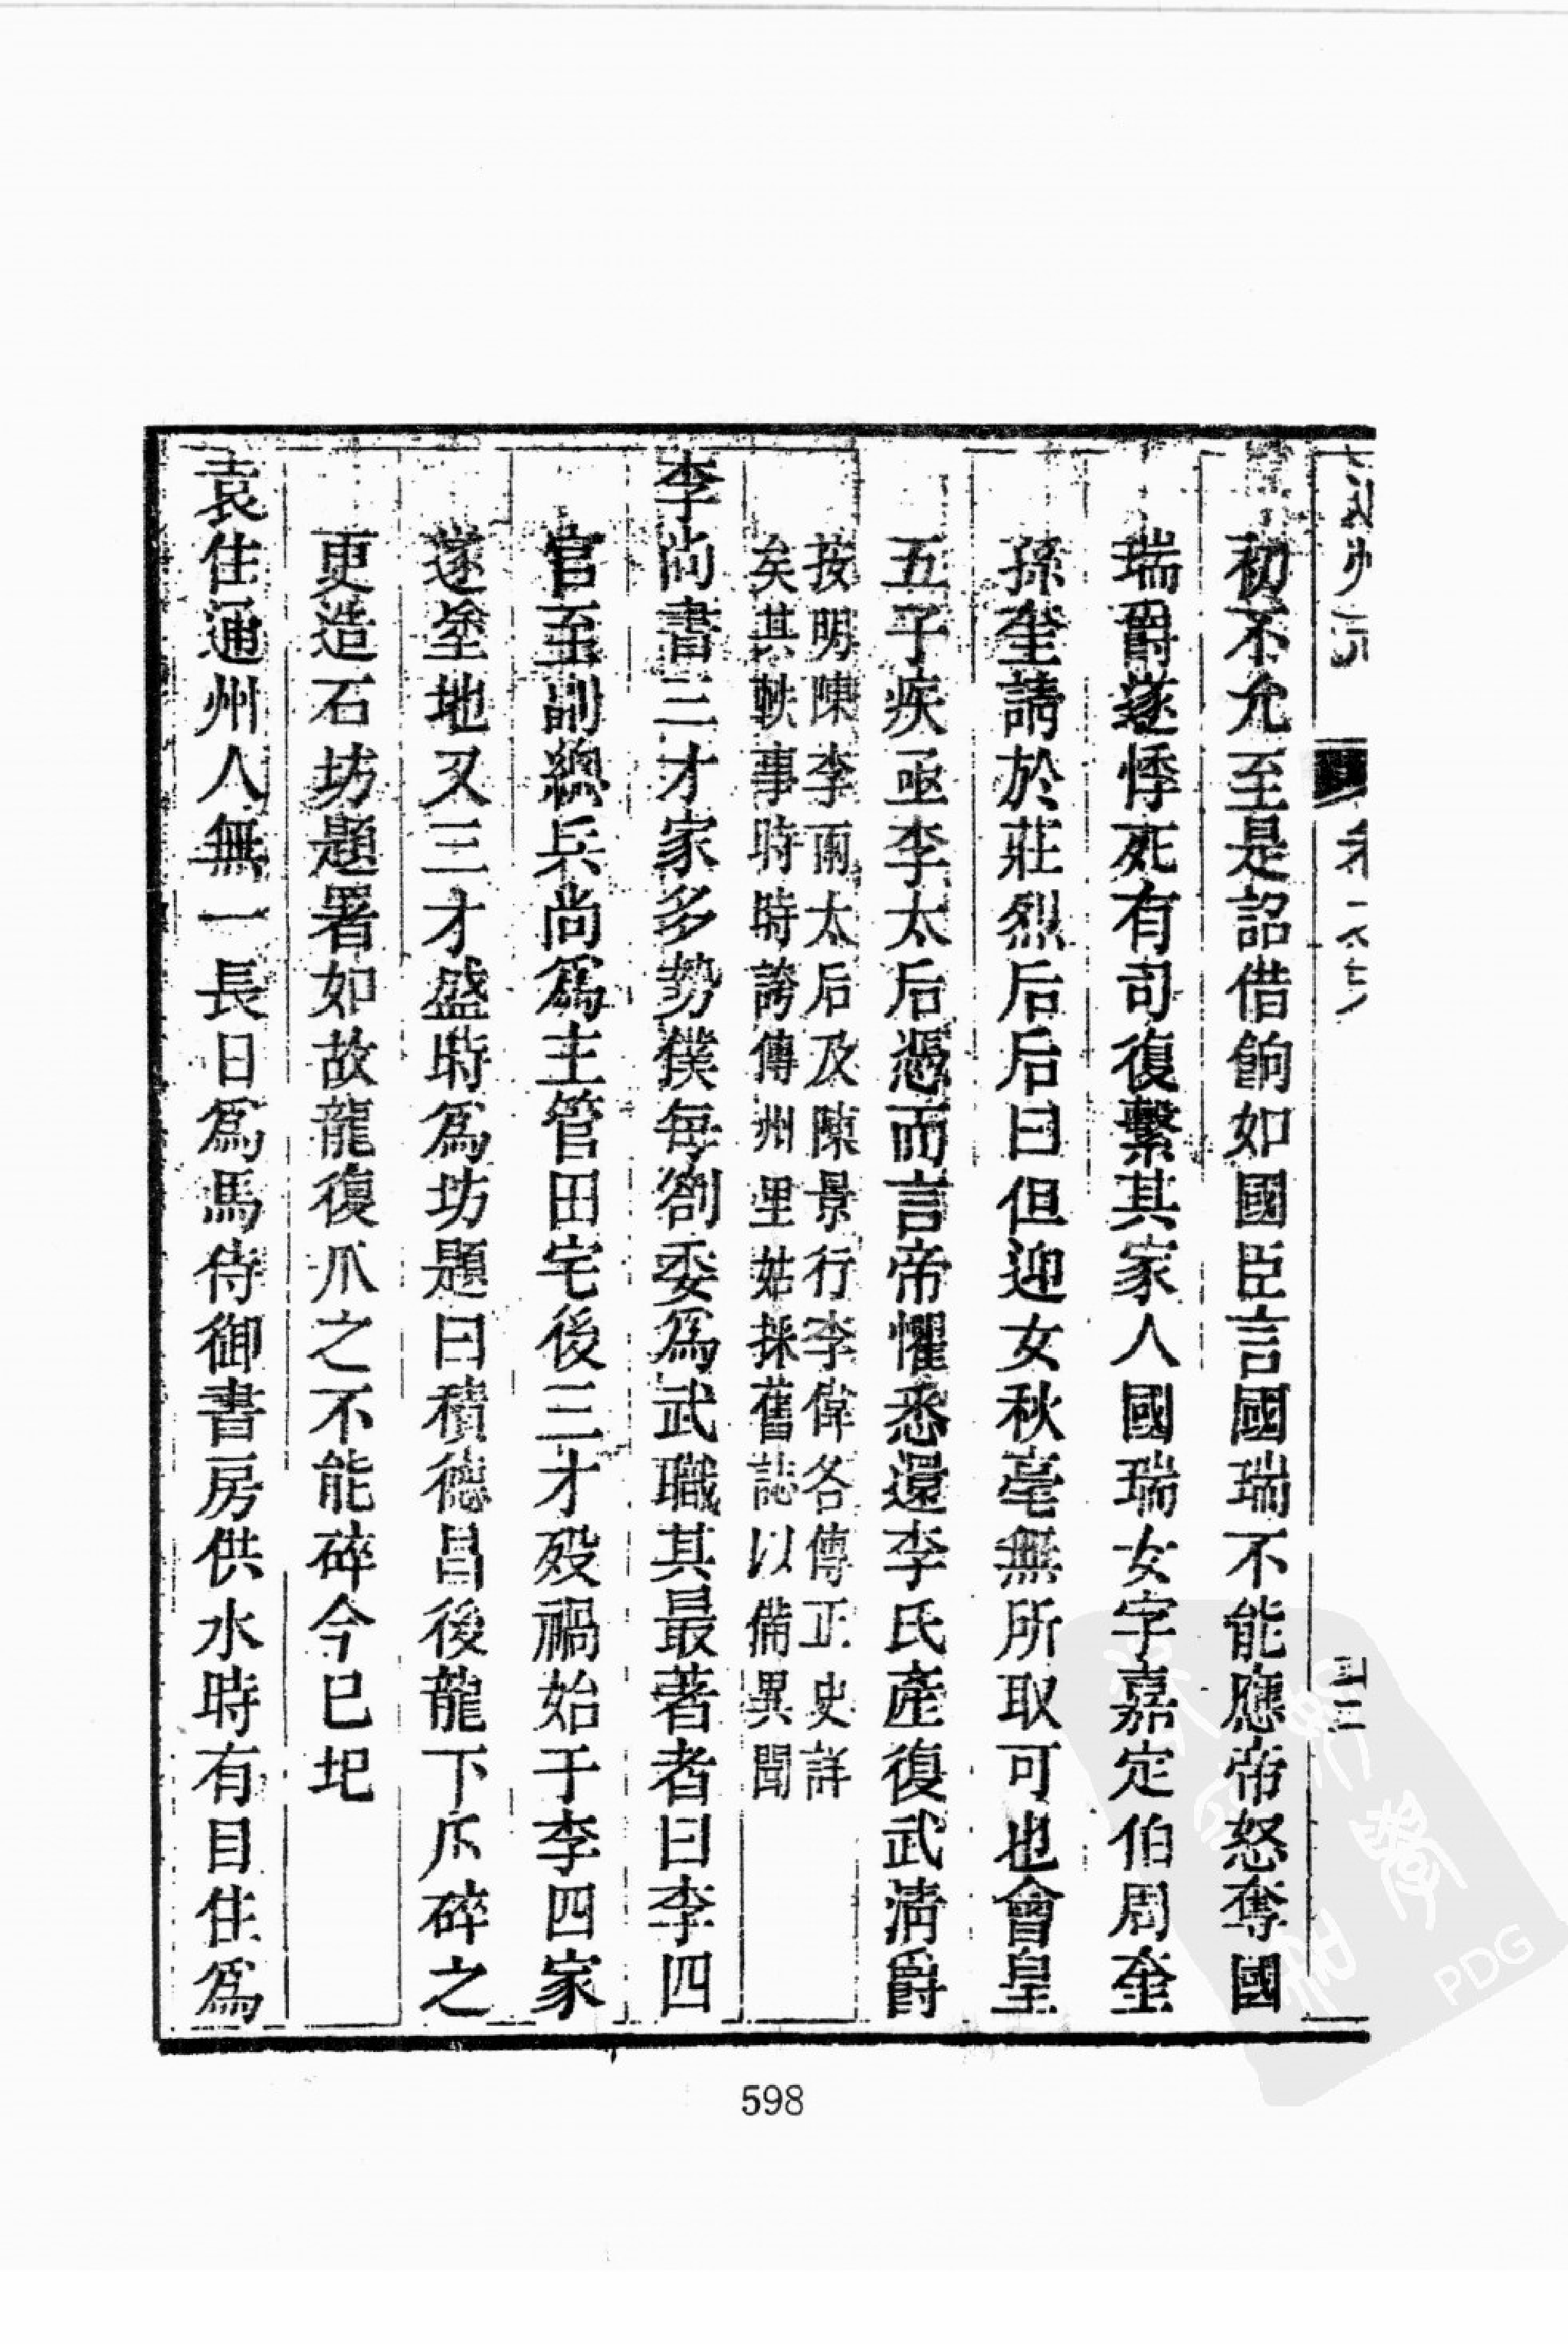 初不允至是詔借餉如國臣言國瑞不能應帝怒奪國
瑞爵遂悸死有司復繫其家人國瑞女字嘉定伯周奎
孫奎請於莊烈后后曰但迎女秋毫無所取可也會皇
五子疾亟李太后憑而言帝懼悉還李氏產復武清爵
按明陳李兩太后及陳景行李偉各傳正史詳
矣其軼事時時誇傳州里姑採舊誌以備異聞
李尚書三才家多勢僕每劄委爲武職其最著者曰李四
官至副總兵尚爲主管田宅後三才歿禍始于李四家
遂塗地又三才盛時爲坊題曰積德昌後龍下爪碎之
更造石坊題署如故龍復爪之不能碎今已圮
袁住通州人無一長日爲馬侍御書房供水時有目住爲
598
PDG